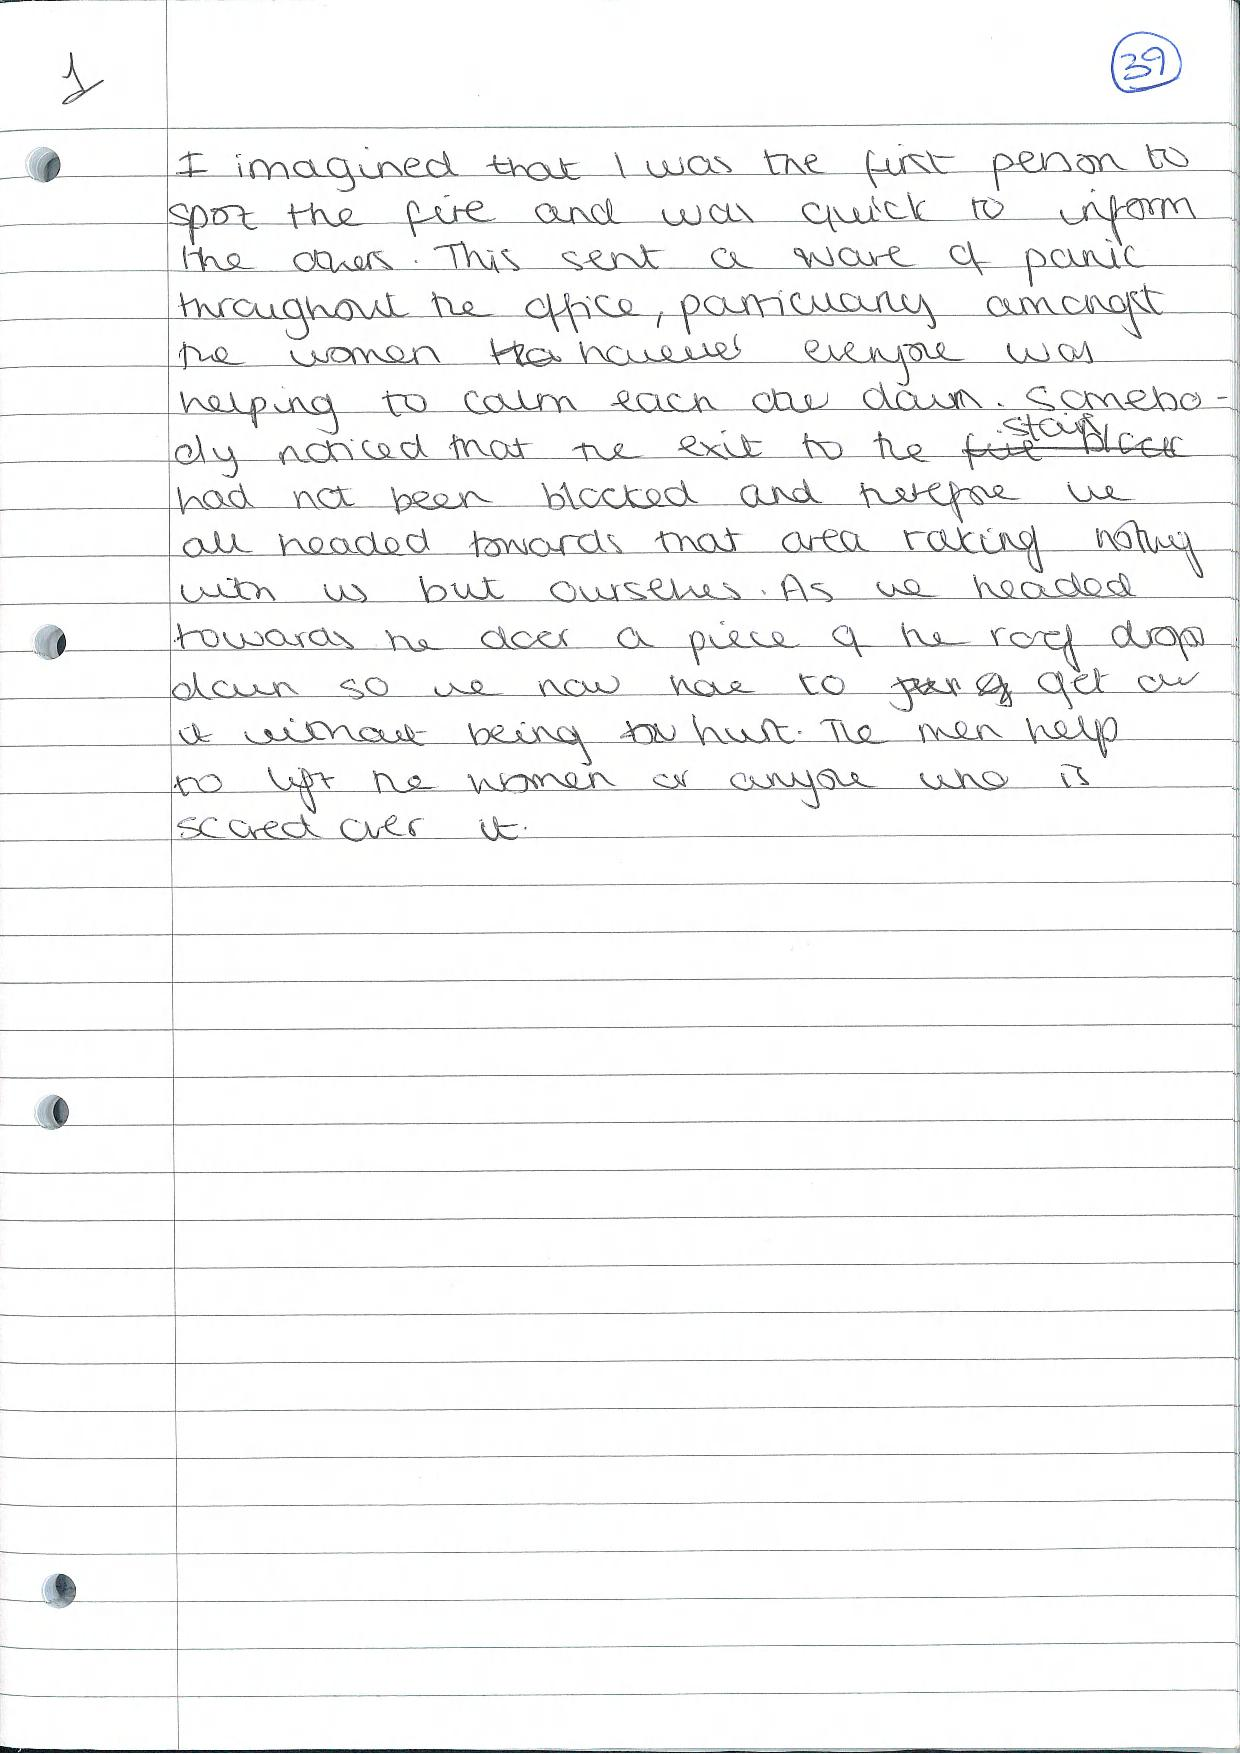 1
39
I imagined that I was the first person to
spot the fire and was quick to inform
the others. This sent a wave of panic
throughout the office, particularly amongst
the women however everyone was
helping to calm each one down. Somebo-
dy noticed that the exit to the stairs
had not been blocked and therefore we
all headed towards that area taking nothing
with us but ourselves. As we headed
towards the door a piece of the roof drops
down so we now have to get over
it without being hurt. The men help
to lift the women or anyone who is
scared over it.